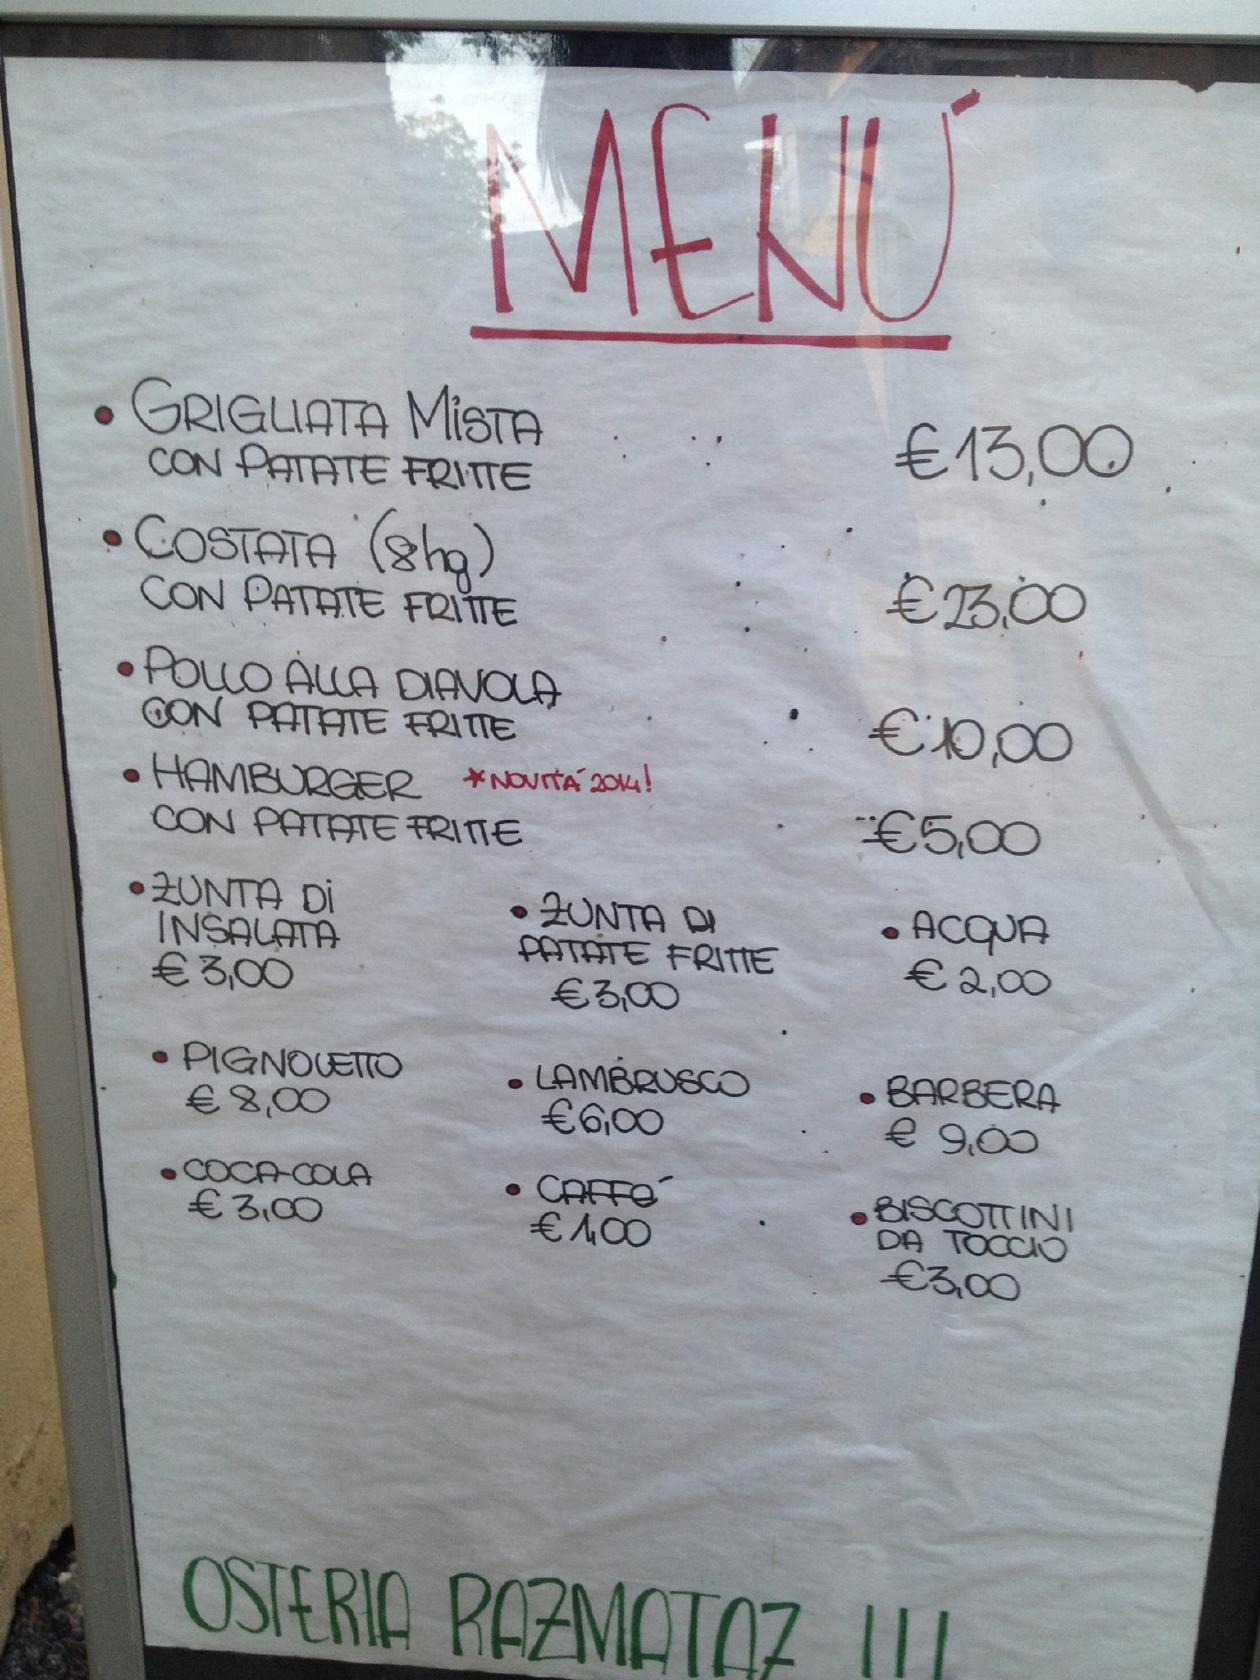 MENÚ
• GRIGLIATA MISTA
CON PATATE FRITTE
€ 13,00
• COSTATA (8hg)
CON PATATE FRITTE
€ 23,00
• POLLO ALLA DIAVOLA
CON PATATE FRITTE
€ 10,00
• HAMBURGER *NOVITÁ 2014!
CON PATATE FRITTE
€ 5,00
• ZUNTA DI
INSALATA
€ 3,00
• ZUNTA DI
PATATE FRITTE
€ 3,00
• ACQUA
€ 2,00
• PIGNOLETTO
€ 8,00
• LAMBRUSCO
€ 6,00
• BARBERA
€ 9,00
• COCA-COLA
€ 3,00
• CAFFÉ
€ 1,00
• BISCOTTINI
DA TOCCIO
€ 3,00
OSTERIA RAZMATAZ !!!